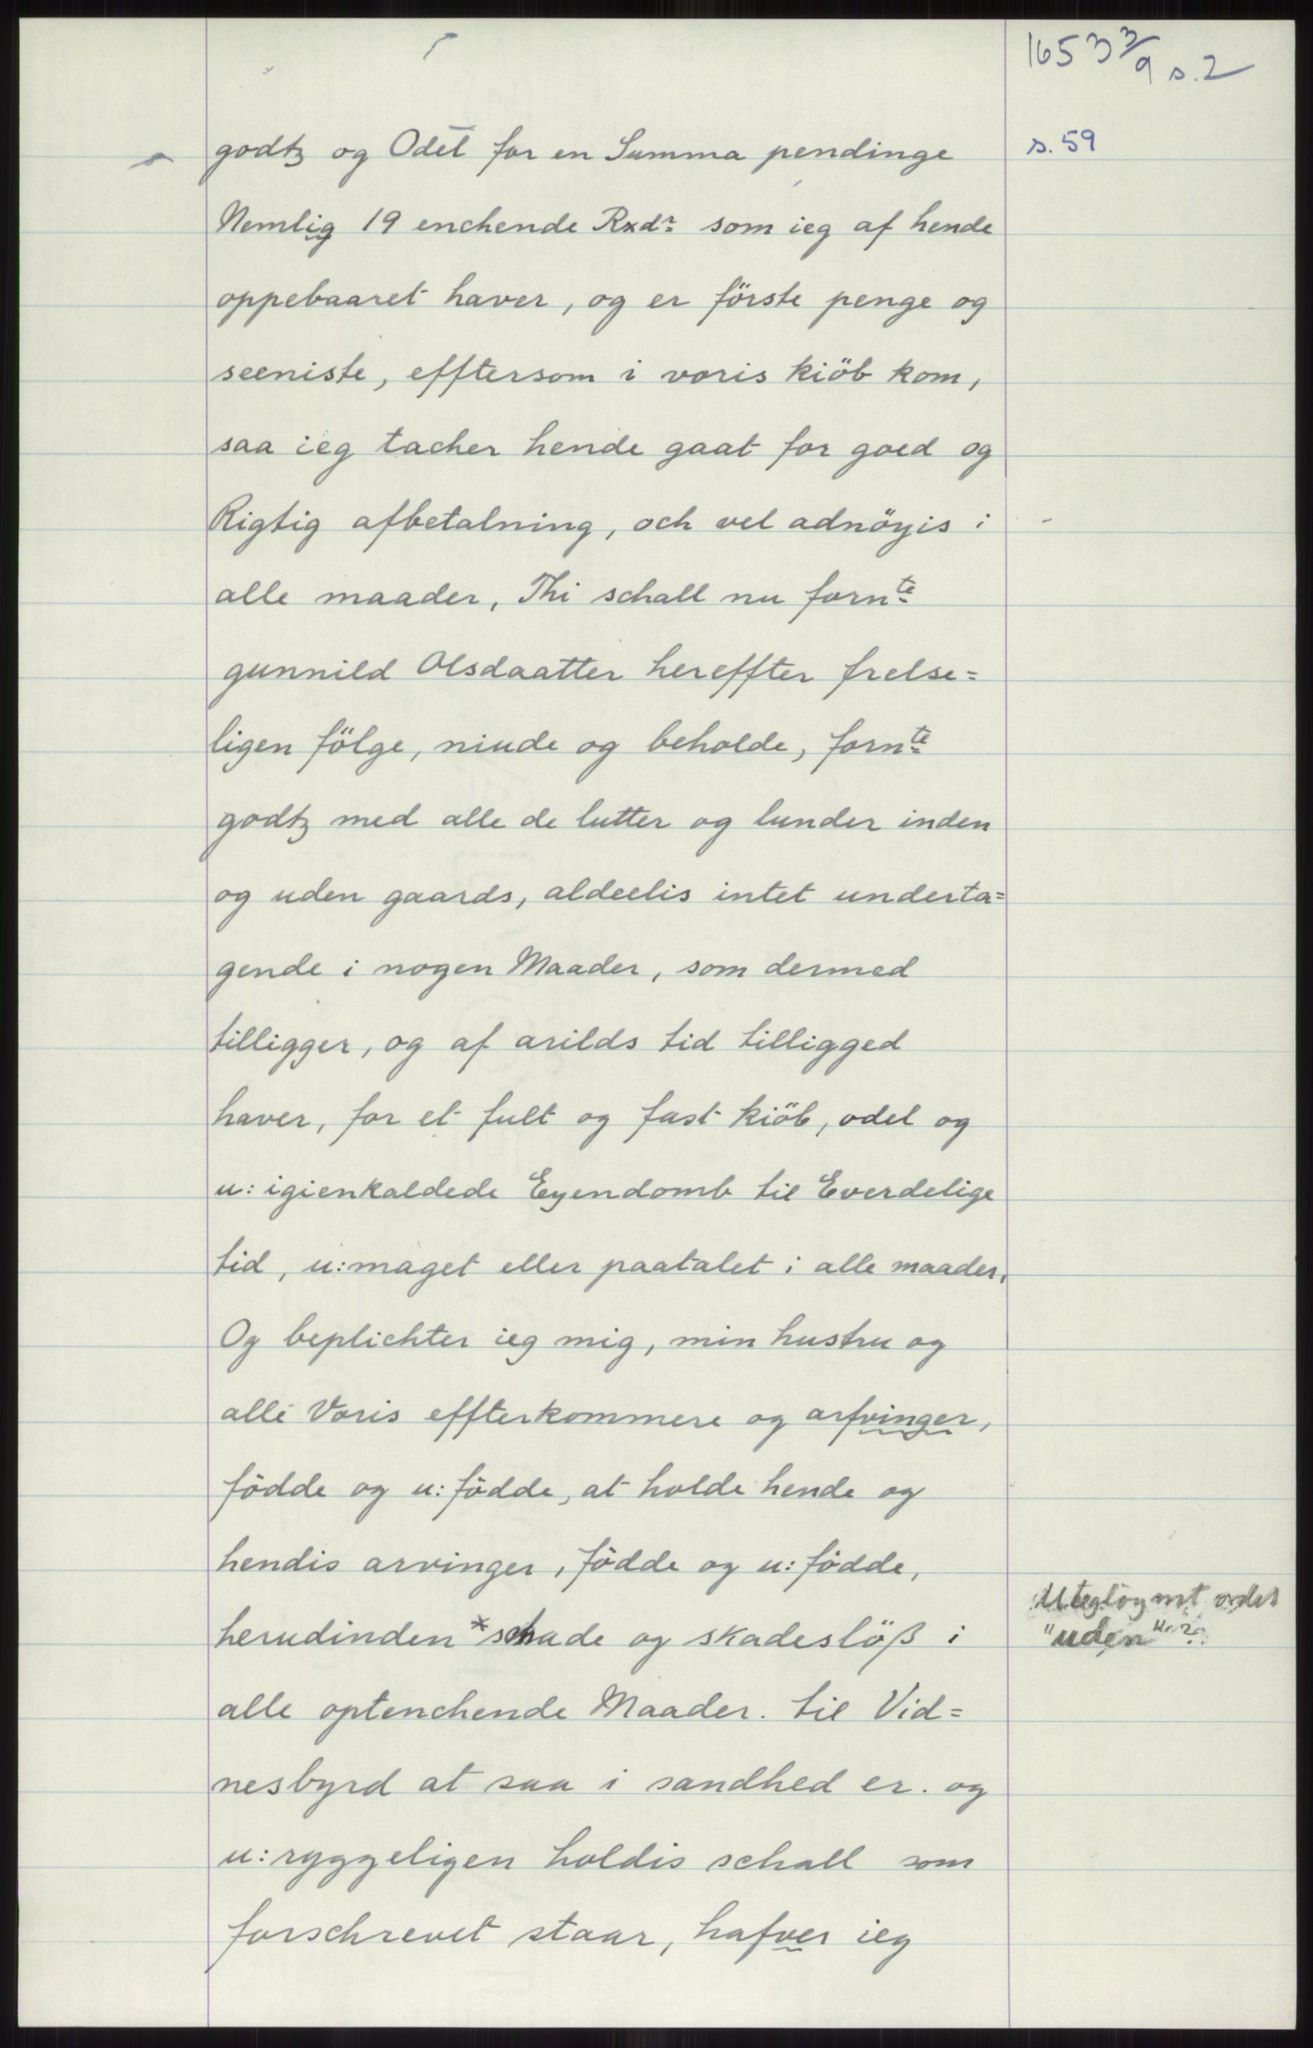 1653 3/9 s. 2
s. 59
godtz og Odel for en Summa pendinge
Nemlig 19 enchende Rxdr: som ieg af hende
oppebaaret haver, og er förste penge og
seeniste, efftersom i voris kiöb kom,
saa ieg tacher hende gaat for goed og
Rigtig afbetalning, och vel adnöyis i
alle maader, Thi schall nu fornte
gunnild Olsdaatter hereffter frelse=
ligen fölge, niude og beholde, fornte
godtz med alle de lutter og lunder inden
og uden gaards, aldeelis intet underta=
gende i nogen Maader, som dermed
tilligger, og af arilds tid tilligged
haver, for et fult og fast kiöb, odel og
u: igienkaldede Eyendomb til Everdelige
tid, u: maget eller paatalet i alle maader,
Og beplichter ieg mig, min hustru og
alle Voris effterkommere og arfvinger,
födde og u: födde, at holde hende og
hendis arvinger, födde og u: födde,
herudinden *schade og skadeslöß i
alle optenchende Maader. til Vid=
nesbyrd at saa i sandhed er. og
u: ryggeligen holdis schall som
forschrevet staar, hafver ieg
Utegløymt ordet
"uden"?